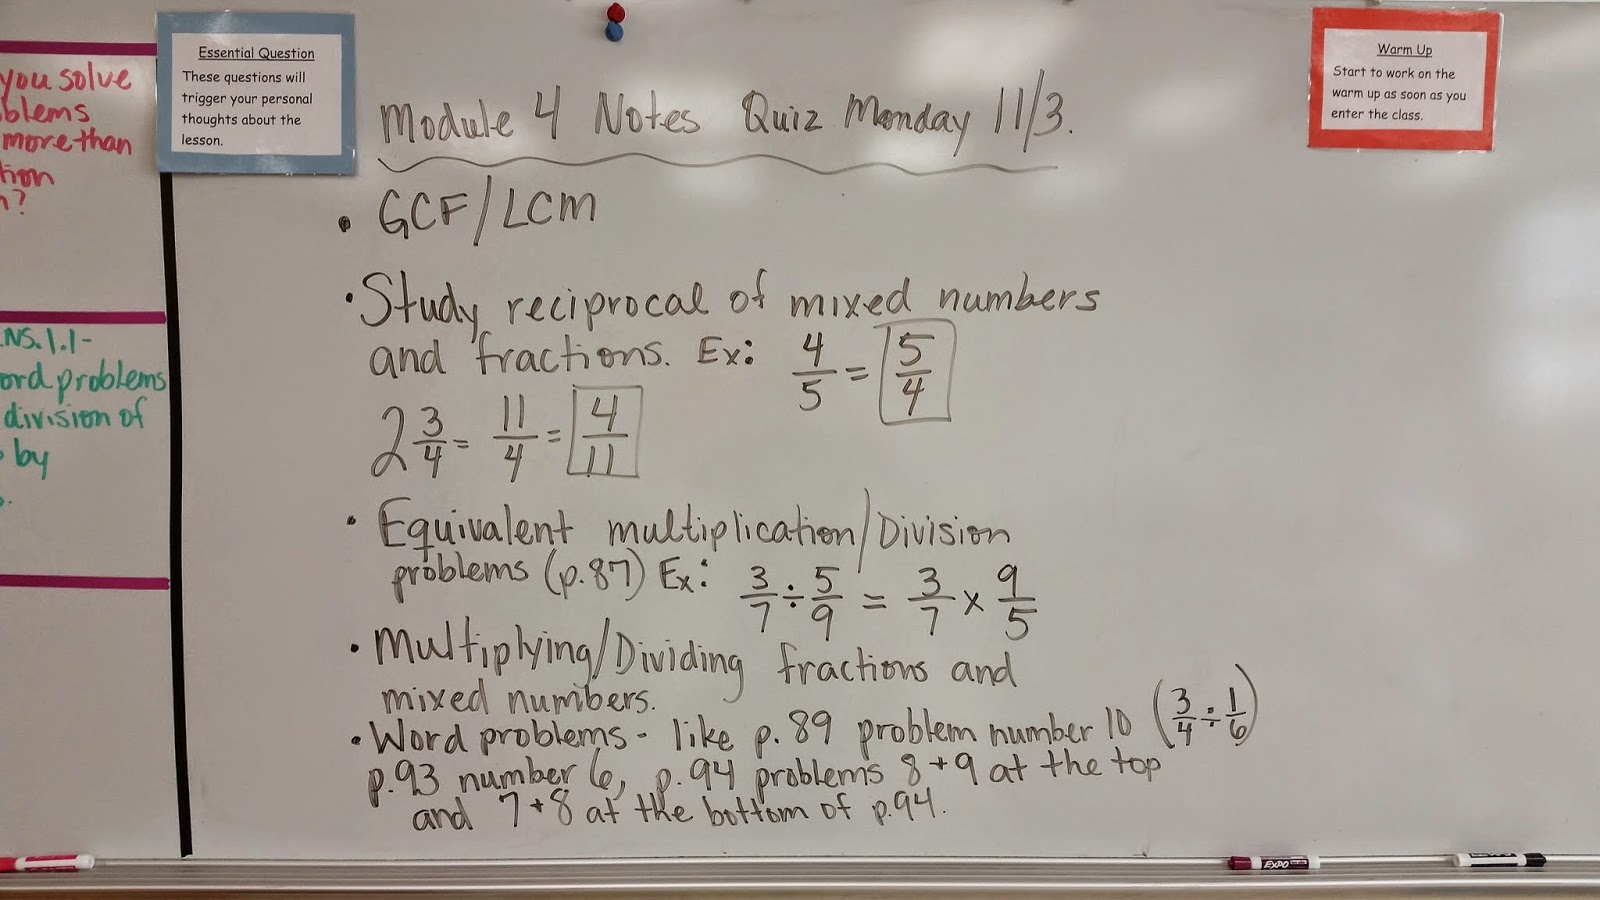 you solve
blems
more than
tion
n?
NS.1.1-
ord problems
division of
by
Essential Question
These questions will
trigger your personal
thoughts about the
lesson.
Warm Up
Start to work on the
warm up as soon as you
enter the class.
Module 4 Notes Quiz Monday 11/3.
• GCF/LCM
• Study reciprocal of mixed numbers
and fractions. Ex: 4/5 = 5/4
2 3/4 = 11/4 = 4/11
• Equivalent multiplication/Division
problems (p.87) Ex: 3/7 ÷ 5/9 = 3/7 × 9/5
• Multiplying/Dividing fractions and
mixed numbers.
• Word problems - like p. 89 problem number 10 (3/4 ÷ 1/6)
p.93 number 6, p.94 problems 8 + 9 at the top
and 7 + 8 at the bottom of p.94.
EXPO